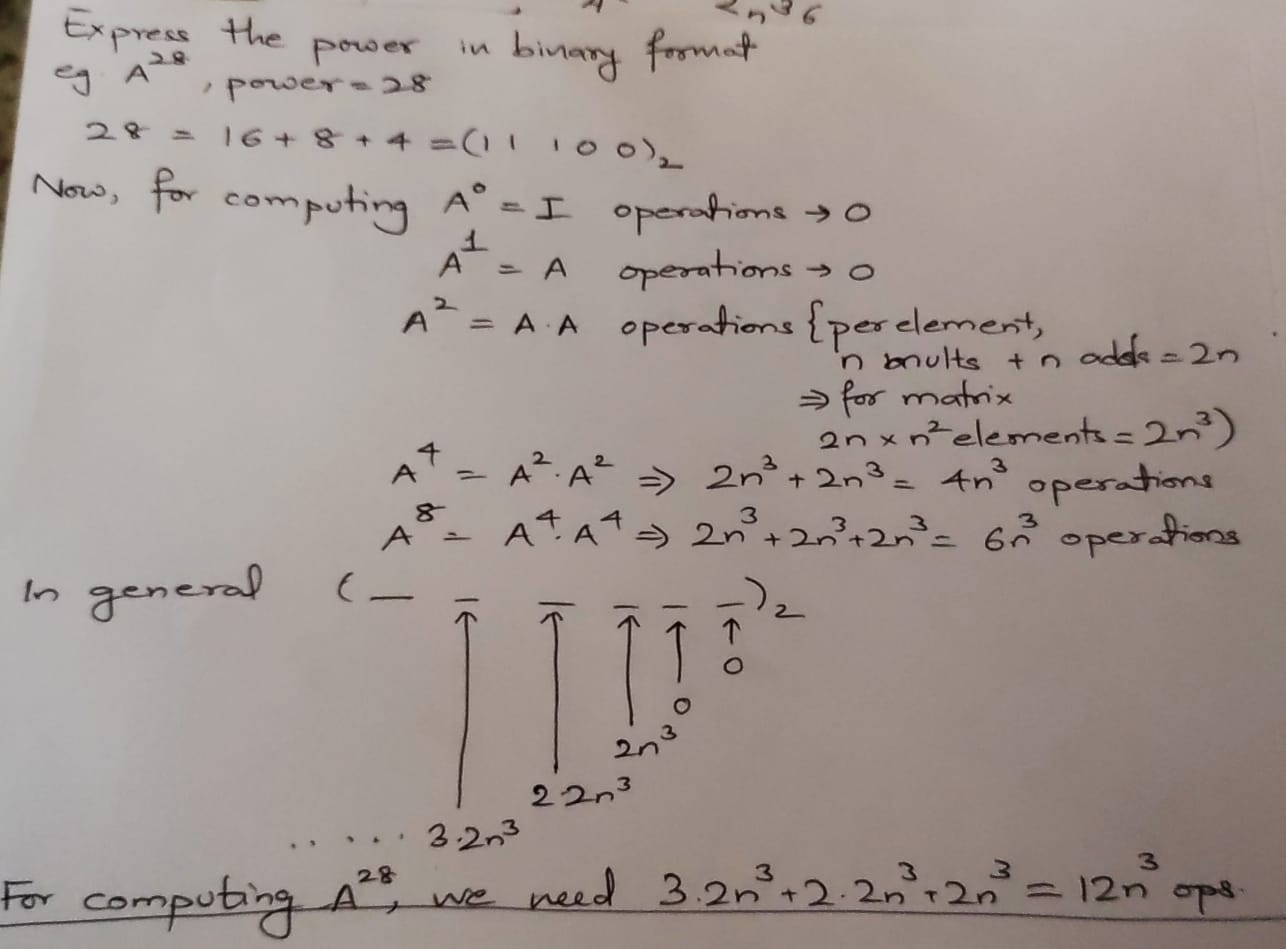 Express the power in binary format
eg A²⁸, power = 28
28 = 16 + 8 + 4 = (1 1 1 0 0)₂
Now, for computing A⁰ = I operations → 0
A¹ = A operations → 0
A² = A·A operations {per element,
n mults + n adds = 2n
⇒ for matrix
2n × n² elements = 2n³)
A⁴ = A²·A² ⇒ 2n³ + 2n³ = 4n³ operations
A⁸ = A⁴·A⁴ ⇒ 2n³ + 2n³ + 2n³ = 6n³ operations
In general (_ _ _ _ _ _)₂
↑ ↑ ↑ ↑ ↑
0
0
2n³
2·2n³
..... 3·2n³
For computing A²⁸, we need 3·2n³ + 2·2n³ + 2n³ = 12n³ ops.